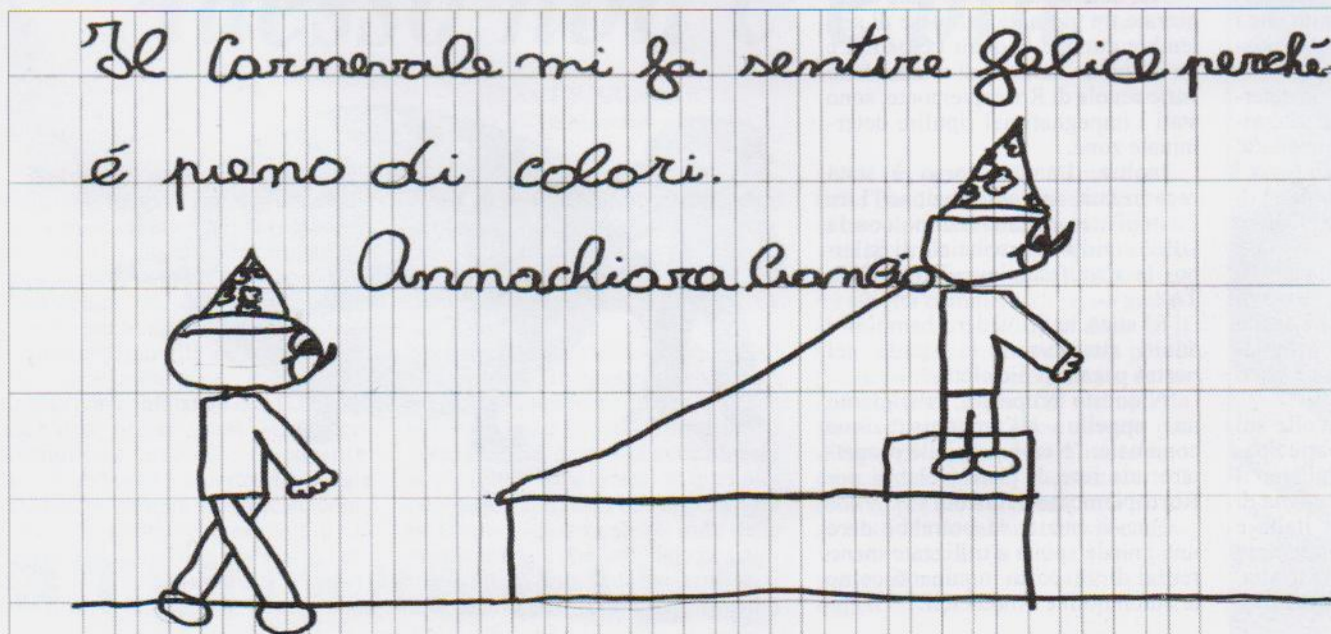 Il Carnevale mi fa sentire felice perché
é pieno di colori.
Annachiara